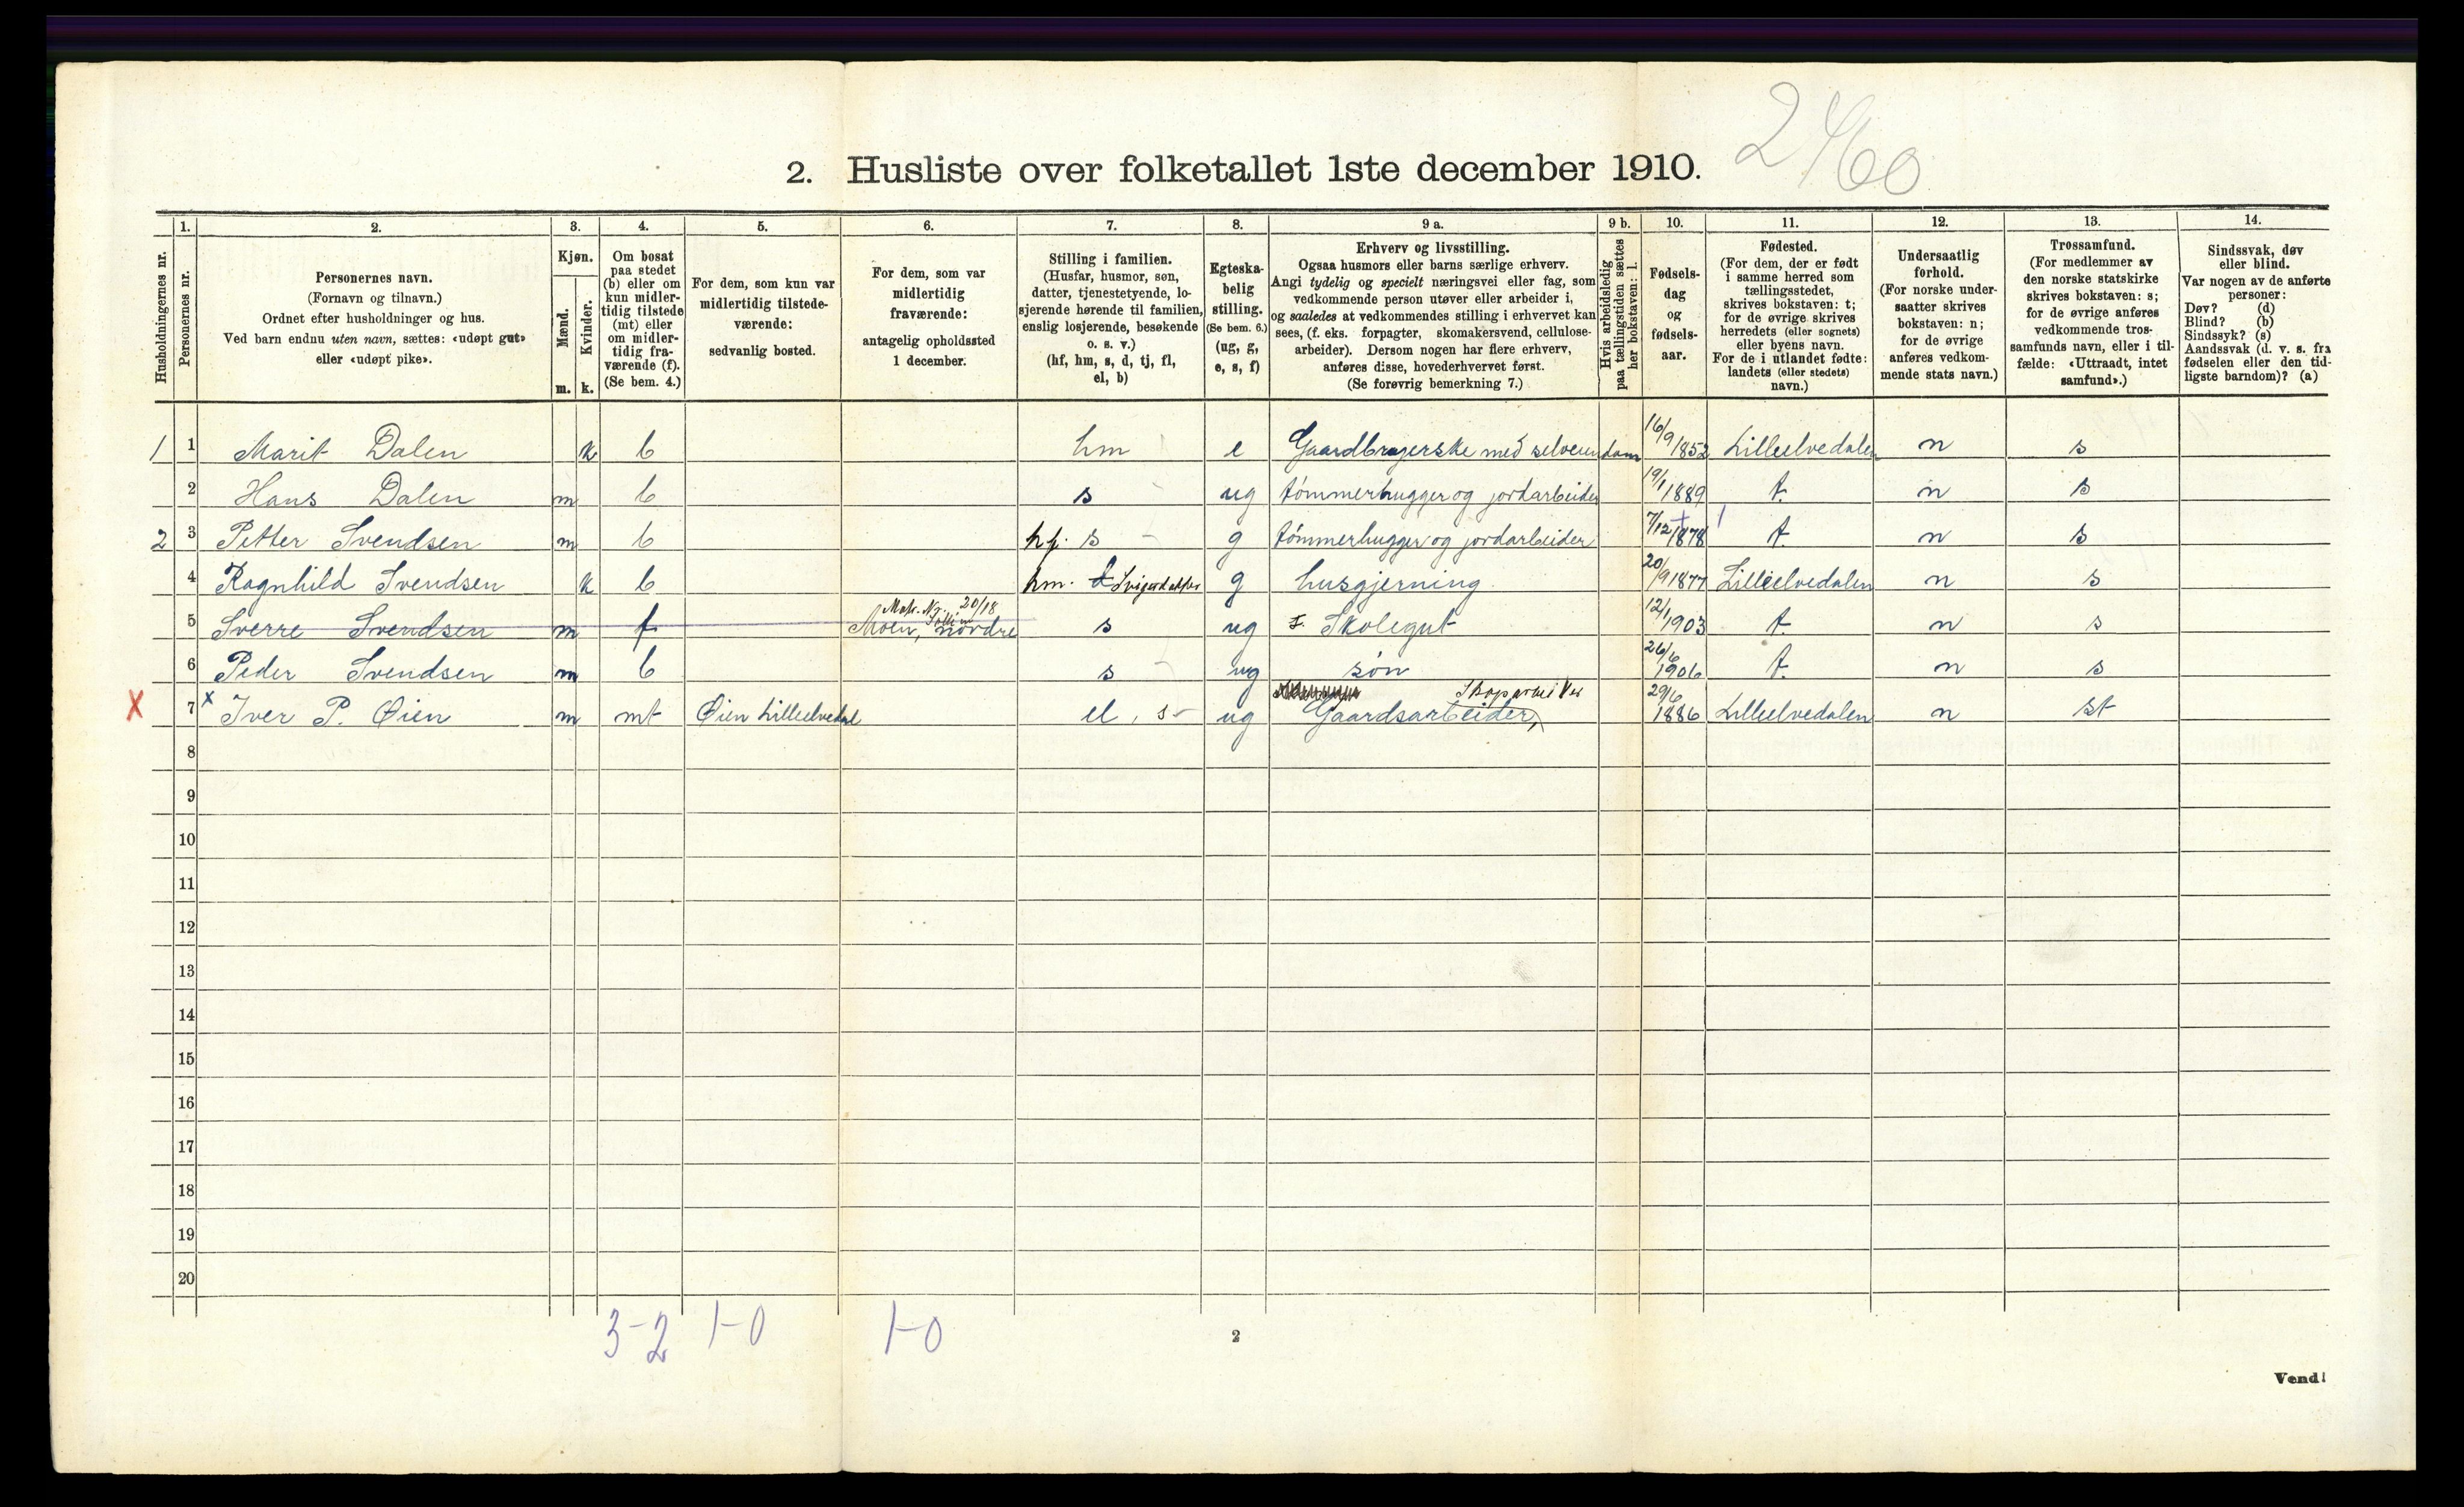 2460
2. Husliste over folketallet 1ste december 1910.
Husholdningernes nr.
1.
Personernes nr.
2.
Personernes navn.
(Fornavn og tilnavn.)
Ordnet efter husholdninger og hus.
Ved barn endnu uten navn, sættes: «udøpt gut»
eller «udøpt pike».
3.
Kjøn.
Mænd.
m.
Kvinder.
k.
4.
Om bosat
paa stedet
(b) eller om
kun midler-
tidig tilstede
(mt) eller
om midler-
tidig fra-
værende (f).
(Se bem. 4.)
5.
For dem, som kun var
midlertidig tilstede-
værende:
sedvanlig bosted.
6.
For dem, som var
midlertidig
fraværende:
antagelig opholdssted
1 december.
7.
Stilling i familien.
(Husfar, husmor, søn,
datter, tjenestetyende, lo-
sjerende hørende til familien,
enslig losjerende, besøkende
o. s. v.)
(hf, hm, s, d, tj, fl,
el, b)
8.
Egteska-
belig
stilling.
(Se bem. 6.)
(ug, g,
e, s, f)
9 a.
Erhverv og livsstilling.
Ogsaa husmors eller barns særlige erhverv.
Angi tydelig og specielt næringsvei eller fag, som
vedkommende person utøver eller arbeider i,
og saaledes at vedkommendes stilling i erhvervet kan
sees, (f. eks. forpagter, skomakersvend, cellulose-
arbeider). Dersom nogen har flere erhverv,
anføres disse, hovederhvervet først.
(Se forøvrig bemerkning 7.)
9 b.
Hvis arbeidsledig
paa tællingstiden sættes
her bokstaven: l.
10.
Fødsels-
dag
og
fødsels-
aar.
11.
Fødested.
(For dem, der er født
i samme herred som
tællingsstedet,
skrives bokstaven: t;
for de øvrige skrives
herredets (eller sognets)
eller byens navn.
For de i utlandet fødte:
landets (eller stedets)
navn.)
12.
Undersaatlig
forhold.
(For norske under-
saatter skrives
bokstaven: n;
for de øvrige
anføres vedkom-
mende stats navn.)
13.
Trossamfund.
(For medlemmer av
den norske statskirke
skrives bokstaven: s;
for de øvrige anføres
vedkommende tros-
samfunds navn, eller i til-
fælde: «Uttraadt, intet
samfund».)
14.
Sindssvak, døv
eller blind.
Var nogen av de anførte
personer:
Døv? (d)
Blind? (b)
Sindssyk? (s)
Aandssvak (d. v. s. fra
fødselen eller den tid-
ligste barndom)? (a)
1 1 Marit Dalen k b hm e Gaardbrugerske med selveiendom 16/9 1852 Lilleelvedalen n s
2 Hans Dalen m b s ug tómmerhugger og jordarbeider 19/1 1889 t. n s
2 3 Petter Svendsen m b hf. s g tómmerhugger og jordarbeider 7/12 1878 t. n s
4 Ragnhild Svendsen k b hm. d Svigerdatter g husgjerning 20/9 1877 Lilleelvedalen n s
5 Sverre Svendsen m f Matr. Nr. 20/18 Moen, nordre s ug Skolegut 12/1 1903 t. n s
6 Peder Svendsen m b s ug són 26/6 1906 t. n s
X 7 x Iver P. Øien m mt Øien Lilleelvedal el, s- ug Gaardsarbeider, Skogarbeider 29/6 1886 Lilleelvedalen n st
8
9
10
11
12
13
14
15
16
17
18
19
20
3-2 1-0 1-0
2
Vend!